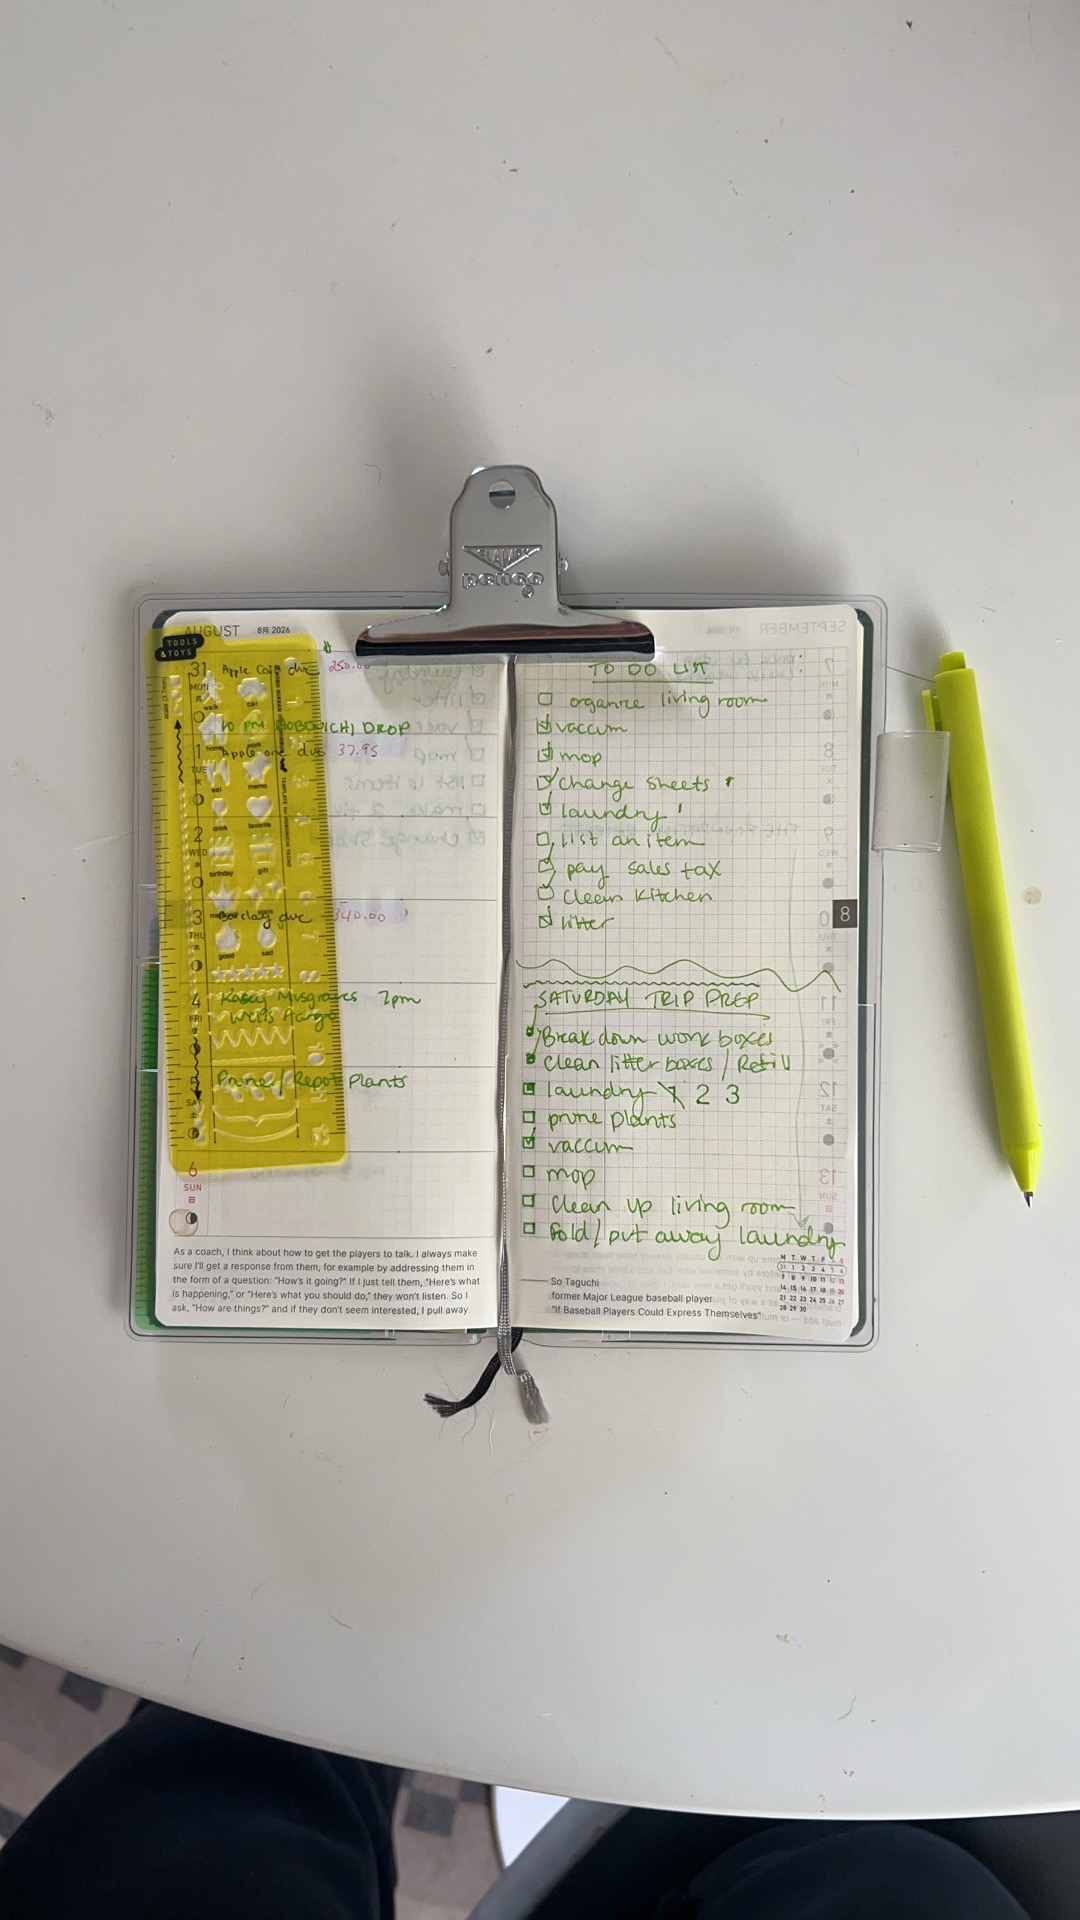 PENCO
AUGUST 8月 2026
TOOLS & TOYS
31 Apple Card due 250.00
MON
10 PM HOBONICHI DROP
1 Apple one due 37.95
TUE
2
WED
3 Barclay due 340.00
THU
4 Kasey Musgraves 7pm
FRI Wells Fargo
5 Prune / Repot Plants
SAT
6
SUN
日
scale (3.7mm)
walk car
home work
eat memo
drink favorite
birthday gift
good sad
As a coach, I think about how to get the players to talk. I always make
sure I'll get a response from them, for example by addressing them in
the form of a question: "How's it going?" If I just tell them, "Here's what
is happening," or "Here's what you should do," they won't listen. So I
ask, "How are things?" and if they don't seem interested, I pull away.
TO DO LIST
organize living room
vaccum
mop
change sheets
laundry
list an item
pay sales tax
clean kitchen
litter
8
SATURDAY TRIP PREP
Break down work boxes
clean litter boxes / Refill
laundry 1 2 3
prune plants
vaccum
mop
clean up living room
fold / put away laundry
So Taguchi
former Major League baseball player
"If Baseball Players Could Express Themselves"
M T W T F S S
31 1 2 3 4 5 6
7 8 9 10 11 12 13
14 15 16 17 18 19 20
21 22 23 24 25 26 27
28 29 30